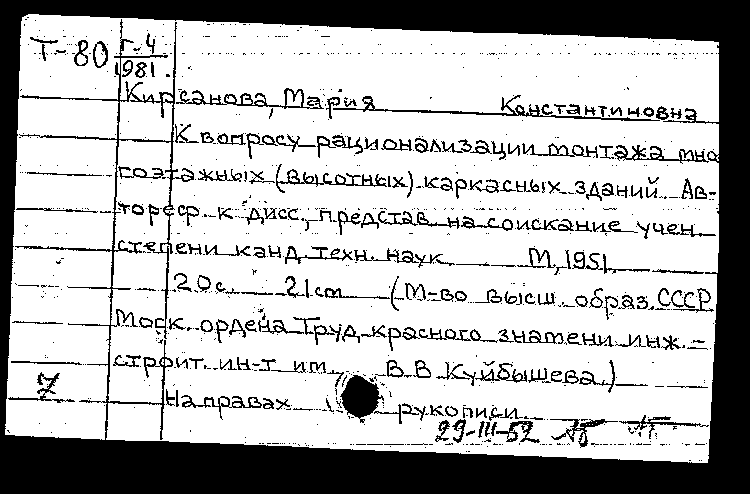 Т-80 Г-4
1981.
Кирсанова, Мария Константиновна
К вопросу рационализации монтажа мно
гоэтажных (высотных) каркасных зданий. Ав-
тореф. к дисс., представ. на соискание учен.
степени канд. техн. наук. М, 1951.
20с. 21cm (М-во высш. образ. СССР
Моск. ордена Труд. красного знамени инж.-
строит. ин-т им. В В Куйбышева.)
7 На правах рукописи
29-III-52